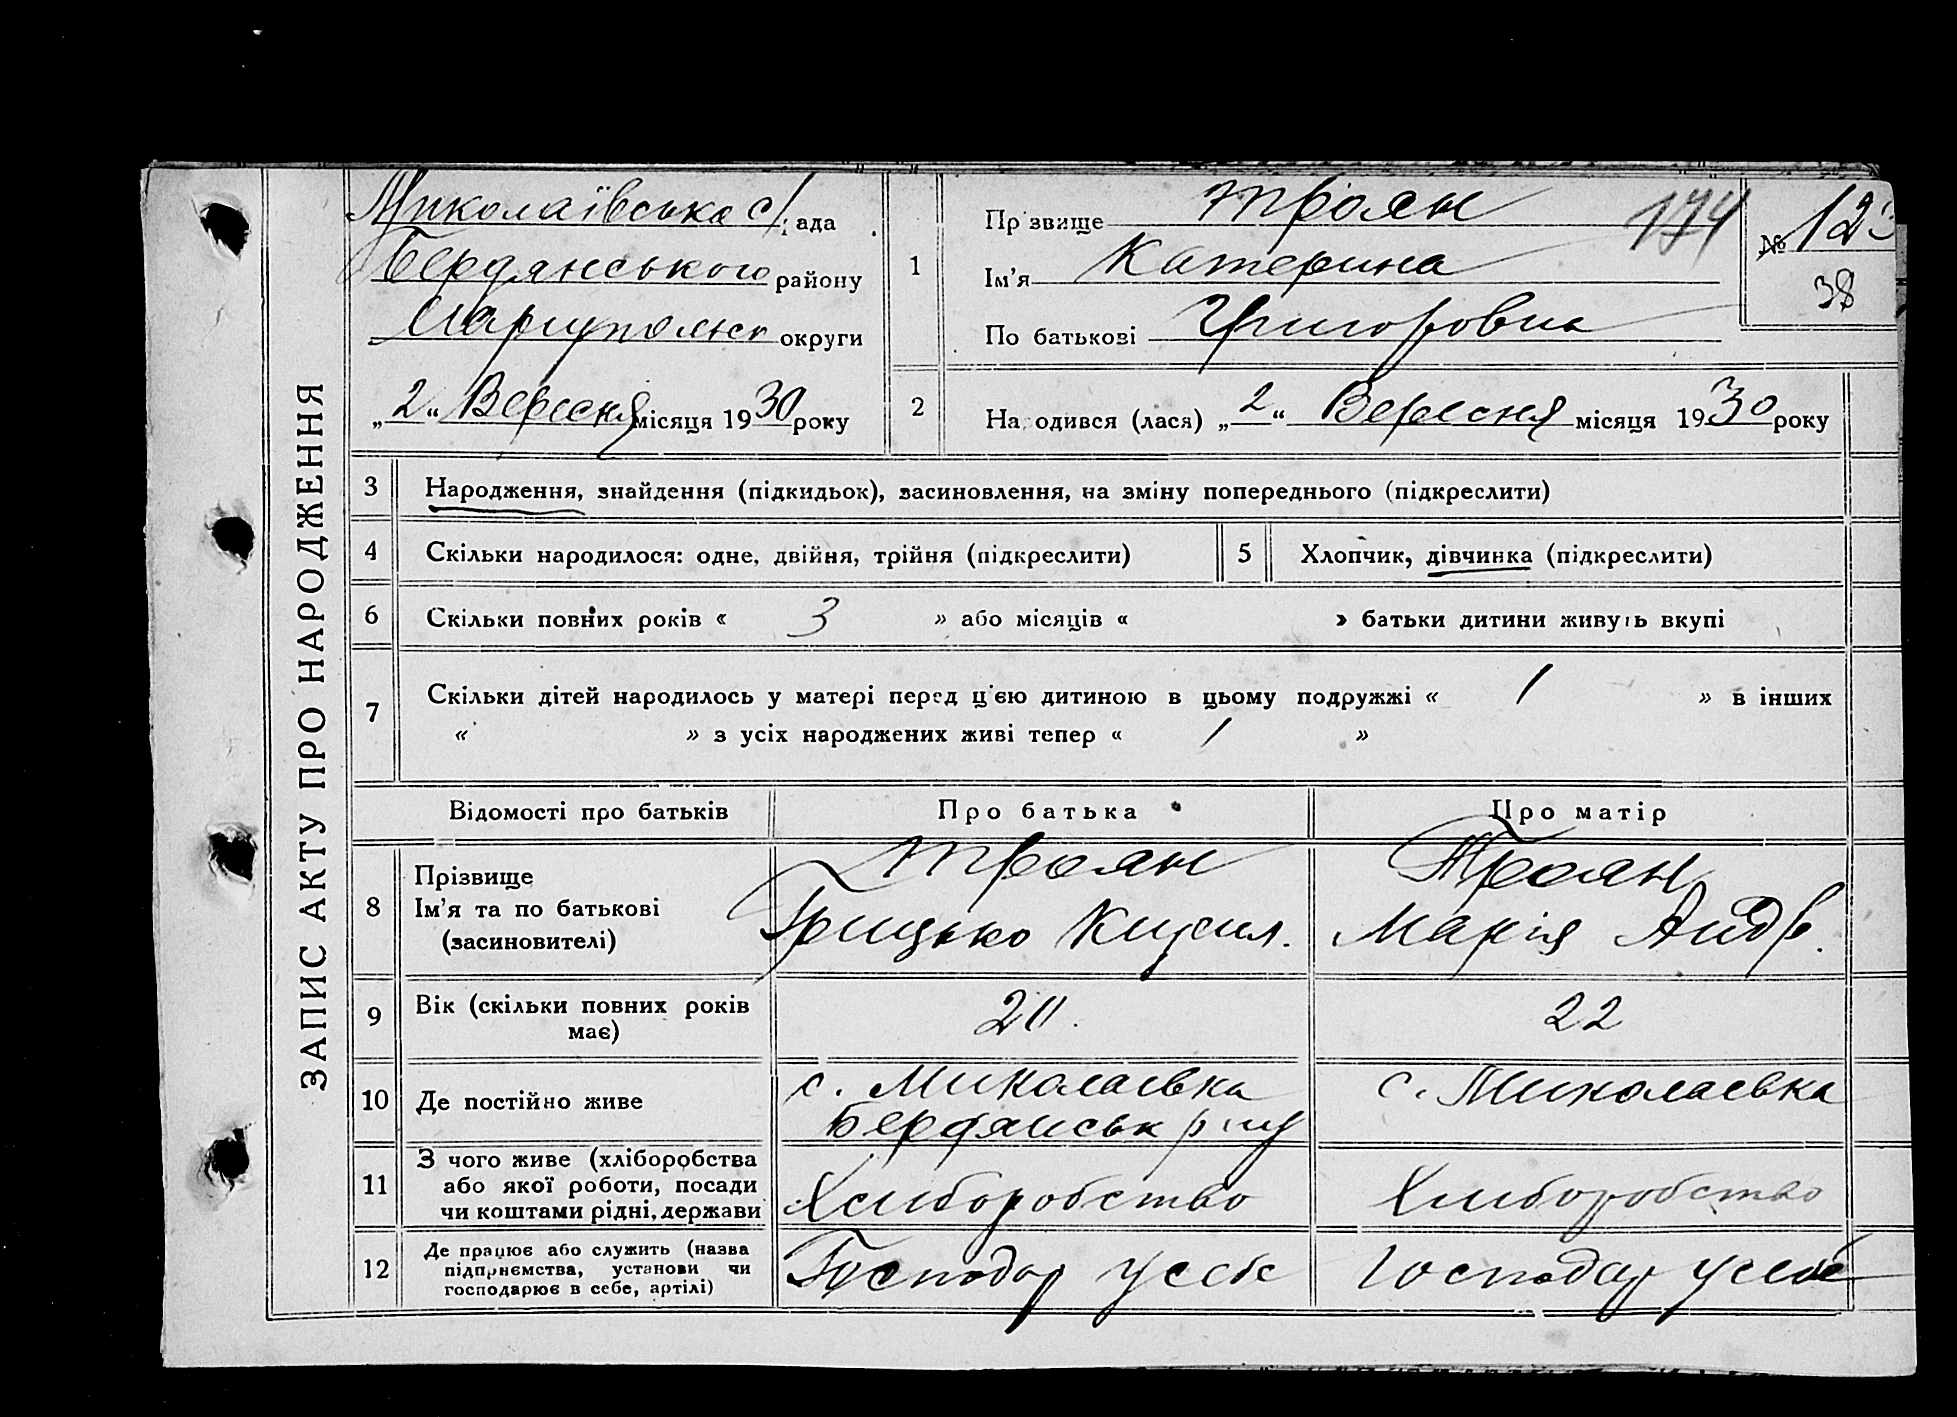 ЗАПИС АКТУ ПРО НАРОДЖЕННЯ
Миколаївська с/рада
Бердянського району
округи
„2“ Вересня місяця 1930 року
1
Прізвище Троян
Ім'я Катерина
По батькові Григоровна
174
№ 123
38
2
Народився (лася) „2“ Вересня місяця 1930 року
3 Народження, знайдення (підкидьок), засиновлення, на зміну попереднього (підкреслити)
4 Скільки народилося: одне, двійня, трійня (підкреслити)
5 Хлопчик, дівчинка (підкреслити)
6 Скільки повних років « 3 » або місяців « » батьки дитини живуть вкупі
7 Скільки дітей народилось у матері перед ц'єю дитиною в цьому подружжі « 1 » в інших
« » з усіх народжених живі тепер « 1 »
Відомості про батьків Про батька Про матір
8 Прізвище
Ім'я та по батькові
(засиновителі)
Троян
Грицько Кирил.
Троян
Марія Андр.
9 Вік (скільки повних років
має)
22
10 Де постійно живе
с. Миколаевка
Бердянськ р-ну
с. Миколаевка
11 З чого живе (хліборобства
або якої роботи, посади
чи коштами рідні, держави
Хлиборобство
Хлиборобство
12 Де працює або служить (назва
підприємства, установи чи
господарює в себе, артілі)
Господар у себе
Господар у себе